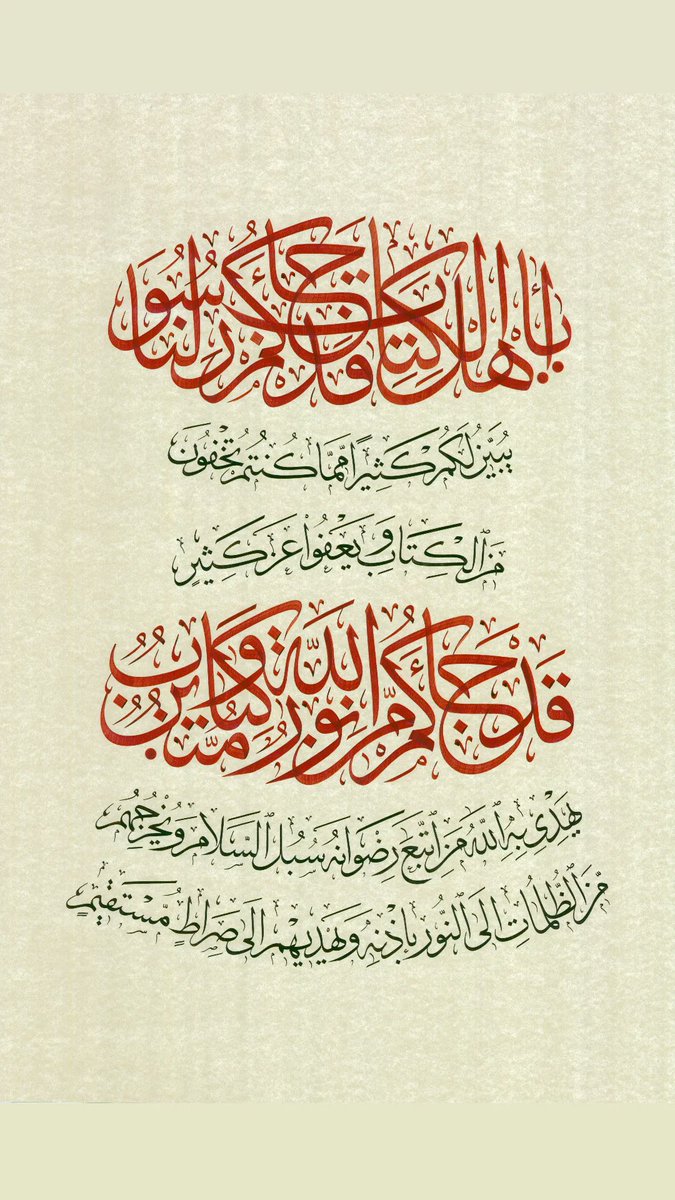 يَا أَهْلَ الْكِتَابِ قَدْ جَاءَكُمْ رَسُولُنَا
يُبَيِّنُ لَكُمْ كَثِيرًا مِّمَّا كُنْتُمْ تُخْفُونَ
مِنَ الْكِتَابِ وَيَعْفُوا عَنْ كَثِيرٍ
قَدْ جَائَكُمْ مِّنَ اللَّهِ نُورٌ وَكِتَابٌ مُّبِينٌ
يَهْدِى بِهِ اللَّهُ مَنِ اتَّبَعَ رِضْوَانَهُ سُبُلَ السَّلَامِ وَيُخْرِجُهُمْ
مِّنَ الظُّلُمَاتِ إِلَى النُّورِ بِإِذْنِهِ وَيَهْدِيهِمْ إِلَى صِرَاطٍ مُّسْتَقِيمٍ